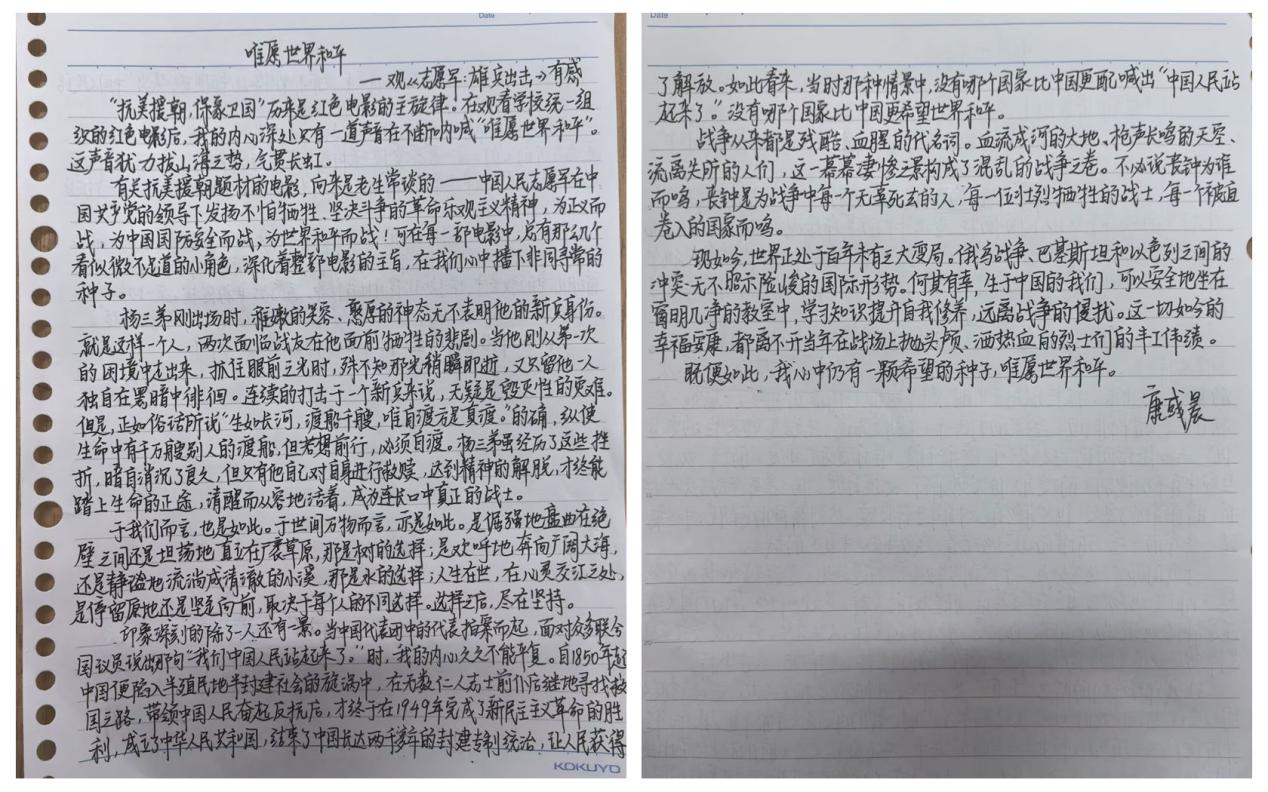 Date
唯愿世界和平
——观《志愿军：雄兵出击》有感
“抗美援朝，保家卫国”历来是红色电影的主旋律！在观看学校统一组
织的红色电影后，我的内心深处只有一道声音在不断呐喊“唯愿世界和平”。
这声音犹力拔山海之势，气贯长虹。
有关抗美援朝题材的电影，向来是老生常谈的——中国人民志愿军在中
国共产党的领导下发扬不怕牺牲、坚决斗争的革命乐观主义精神，为正义而
战，为中国国防安全而战，为世界和平而战！可在每一部电影中，总有那么几个
看似微不足道的小角色，深化着整部电影的主旨，在我们心中播下非同寻常的
种子。
杨三弟刚出场时，稚嫩的笑容、憨厚的神态无不表明他的新兵身份。
就是这样一个人，两次面临战友在他面前牺牲的悲剧。当他刚从第一次
的困境中走出来，抓住眼前之光时，殊不知那光稍瞬即逝，又只留他一人
独自在黑暗中徘徊。连续的打击于一个新兵来说，无疑是毁灭性的更难。
但是，正如俗话所说“生如长河，渡船千艘，唯自渡方是真渡。”的确，纵使
生命中有千万艘别人的渡船，但若想前行，必须自渡。杨三弟虽经历了这些挫
折，暗自消沉了良久，但只有他自己对自身进行救赎，达到精神的解脱，才终能
踏上生命的正途，清醒而从容地活着，成为连长口中真正的战士。
于我们而言，也是如此。于世间万物而言，亦是如此。是倔强地盘曲在绝
壁之间还是坦荡地直立在广袤草原，那是树的选择；是欢呼地奔向广阔大海，
还是静谧地流淌成清澈的小溪，那是水的选择；人生在世，在心灵交江之处，
是停留原地还是坚定向前，取决于每个人的不同选择。选择之后，尽在坚持。
印象深刻的除了人还有一景。当中国代表团中的代表拍案而起，面对众多联合
国议员说出那句“我们中国人民站起来了。”时，我的内心久久不能平复。自1850年起
中国便陷入半殖民地半封建社会的旋涡中，在无数仁人志士前仆后继地寻找救
国之路，带领中国人民奋起反抗后，才终于在1949年完成了新民主主义革命的胜
利，成立了中华人民共和国，结束了中国长达两千多年的封建专制统治，让人民获得
KOKUYO
Date
了解放。如此看来，当时那种情景中，没有哪个国家比中国更配喊出“中国人民站
起来了”。没有哪个国家比中国更希望世界和平。
战争从来都是残酷、血腥的代名词。血流成河的大地、枪声长鸣的天空、
流离失所的人们，这一幕幕凄惨之景构成了混乱的战争之卷。不必说丧钟为谁
而鸣，丧钟是为战争中每个无辜死去的人，每一位壮烈牺牲的战士，每一个被迫
卷入的国家而鸣。
现如今，世界正处于百年未有之大变局。俄乌战争、巴基斯坦和以色列之间的
冲突无不昭示险峻的国际形势。何其有幸，生于中国的我们，可以安全地坐在
窗明几净的教室中，学习知识提升自我修养，远离战争的侵扰。这一切如今的
幸福安康，都离不开当年在战场上抛头颅、洒热血的烈士们的丰工伟绩。
既便如此，我心中仍有一颗希望的种子，唯愿世界和平。